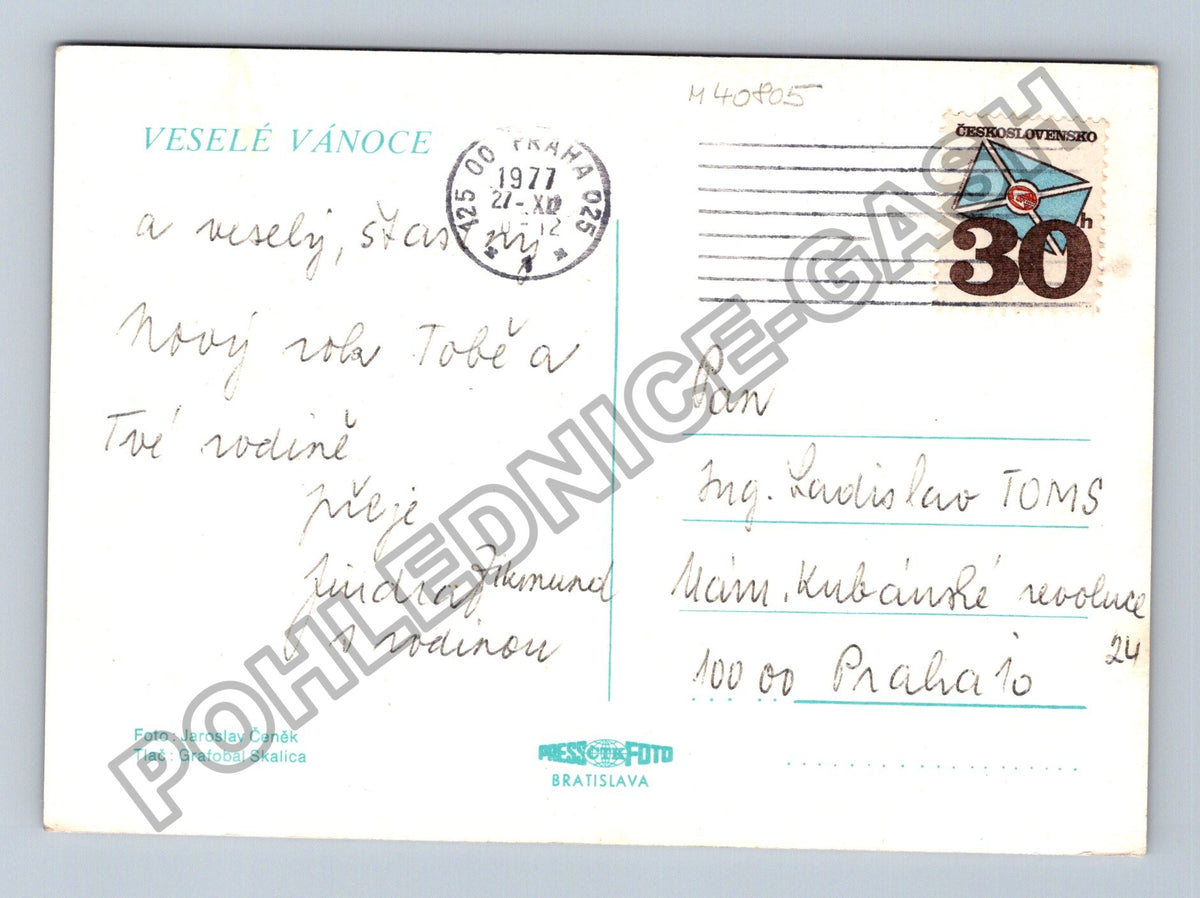 M 40805
VESELÉ VÁNOCE
a veselý, šťastný
Nový rok Tobě a
Tvé rodině
přeje
Jindra Zikmund
s rodinou
Foto: Jaroslav Čeněk
Tlač: Grafobal Skalica
PRESS ČTK FOTO
BRATISLAVA
00 PRAHA 025
1977
27.-XII
ČESKOSLOVENSKO
30h
Pan
Ing. Ladislav TOMS
Nám. Kubánské revoluce
24
100 00 Praha 10
POHLEDNICE-GASH